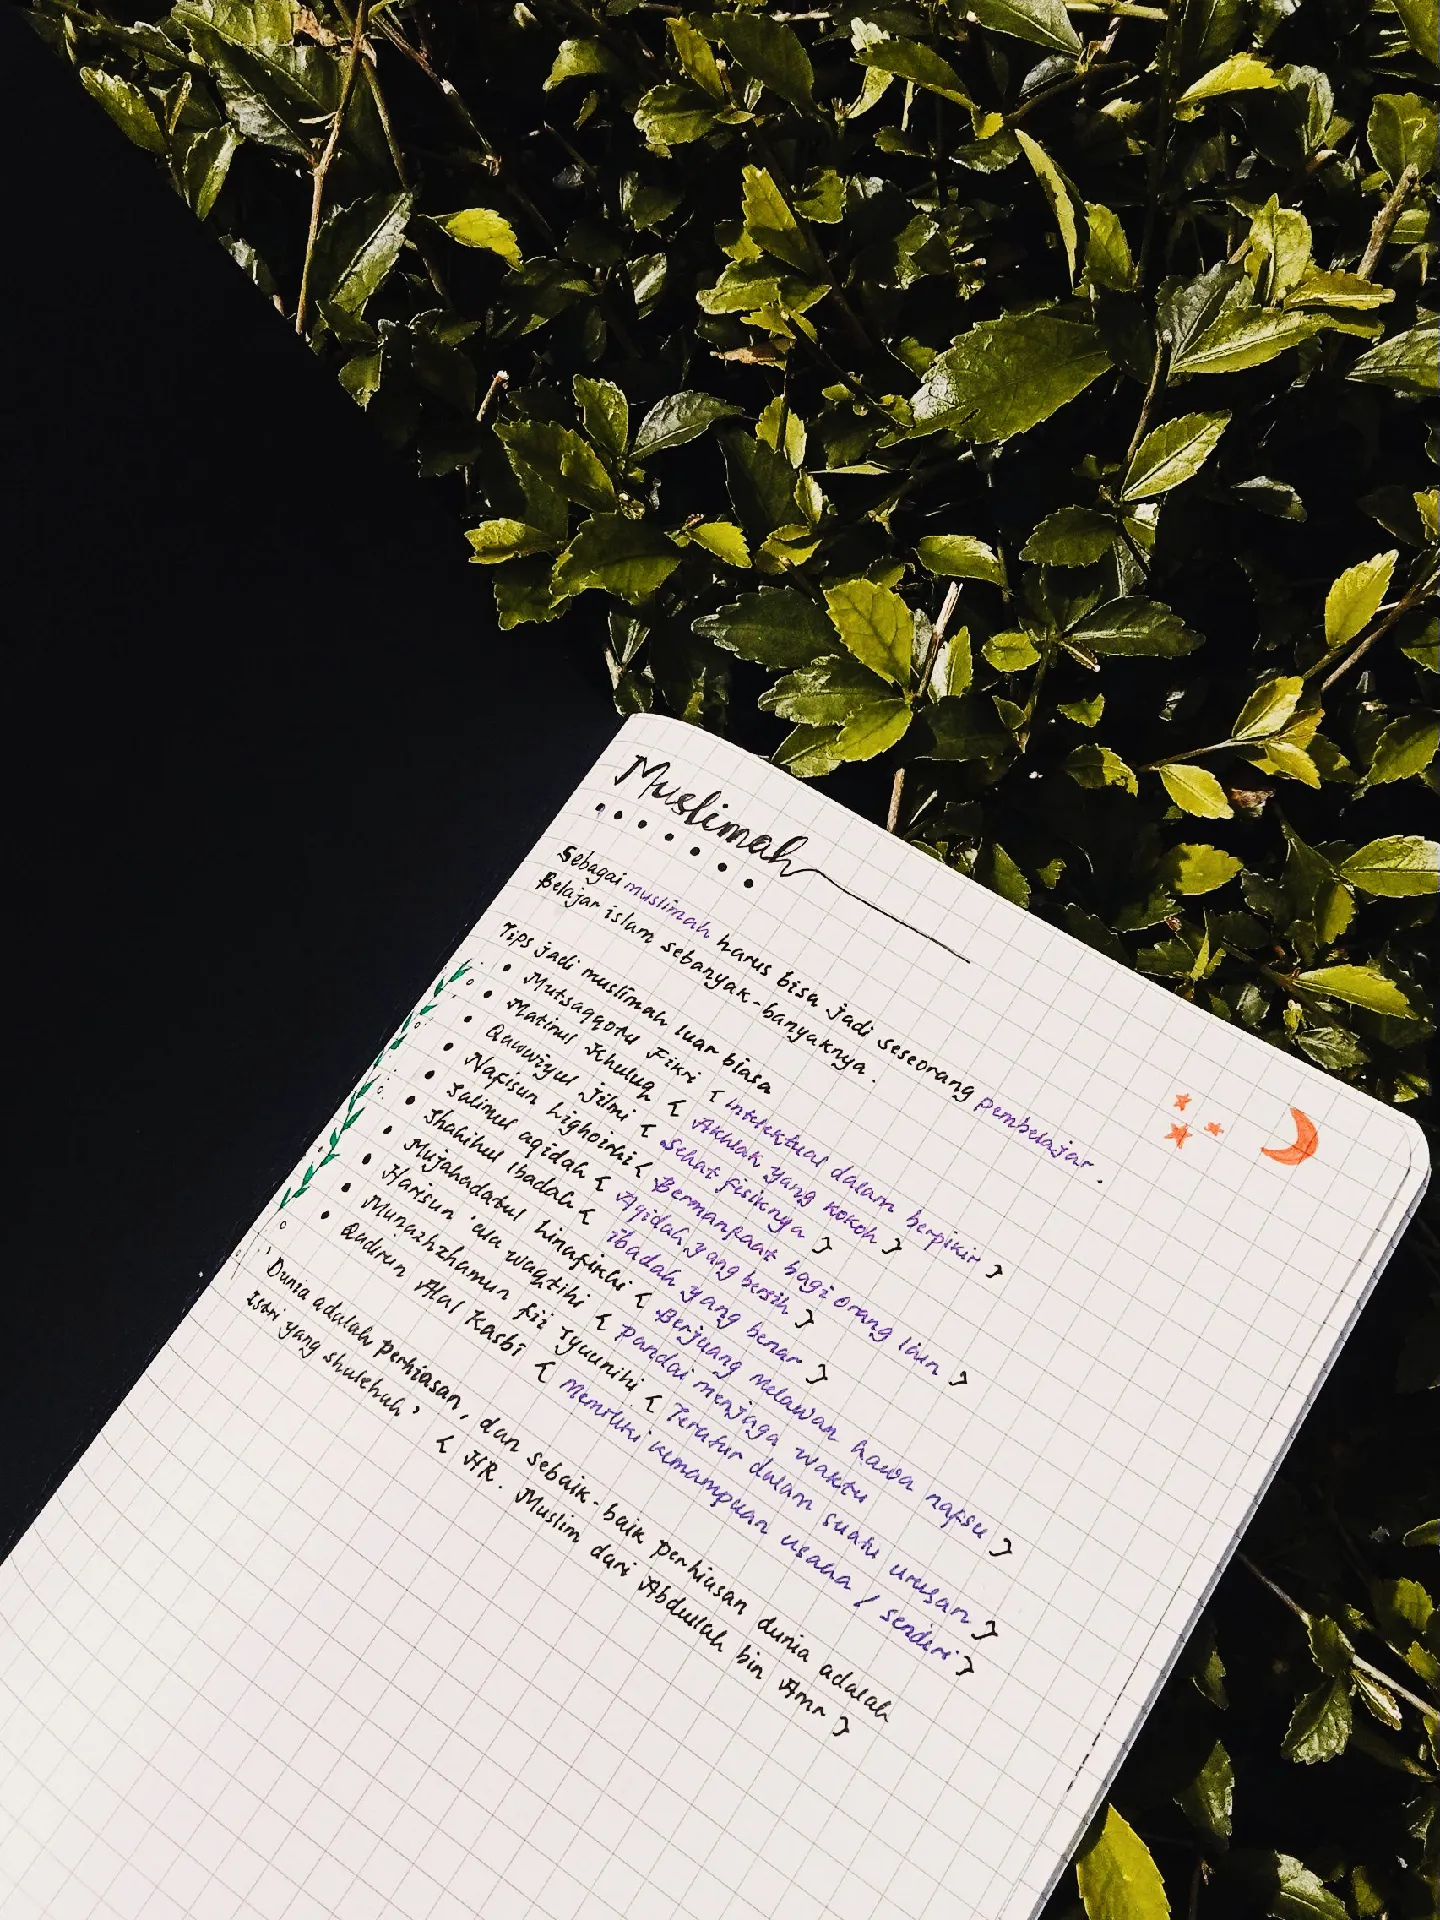 Muslimah
Sebagai muslimah harus bisa jadi seseorang pembelajar.
Belajar islam sebanyak-banyaknya.
Tips jadi muslimah luar biasa
• Mutsaqqofu Fikri { intelektual dalam berpikir }
• Matinul Khuluq { Akhlak yang kokoh }
• Qawwiyul Jismi { Sehat fisiknya }
• Nafisun lighoirhi { Bermanfaat bagi orang lain }
• Salimul aqidah { Aqidah yang bersih }
• Shahihul Ibadah { ibadah yang benar }
• Mujahadatul linafishi { Berjuang melawan hawa nafsu }
• Harisun 'ala waqtihi { pandai menjaga waktu
• Munazhzhamun fii syuunihi { Teratur dalam suatu urusan }
• Qadirun Alal Kasbi { Memiliki kemampuan usaha / senderi }
' Dunia adalah perhiasan, dan sebaik-baik perhiasan dunia adalah
Istri yang shalehah '
{ HR. Muslim dari Abdullah bin Amr }